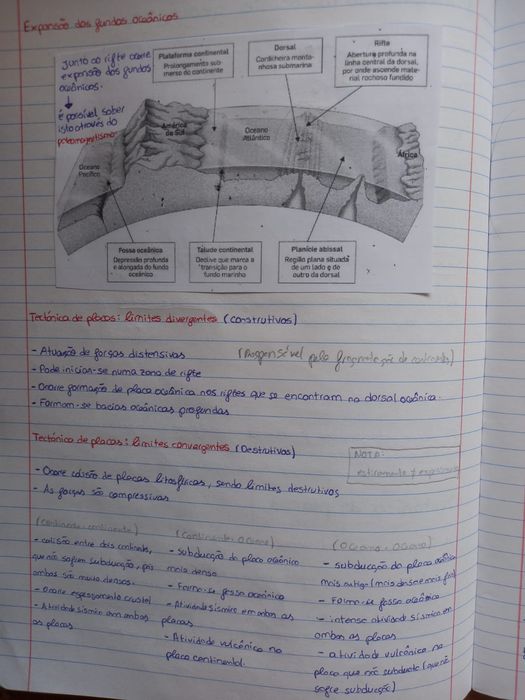 Expansão dos fundos oceânicos
Junto ao rifte ocorre
expansão dos fundos
oceânicos.
é possível saber
isto através do
paleomagnetismo
Plataforma continental
Prolongamento sub-
merso do continente
Dorsal
Cordilheira monta-
nhosa submarina
Rifte
Abertura profunda na
linha central da dorsal,
por onde ascende mate-
rial rochoso fundido
América
do Sul
Oceano
Atlântico
África
Oceano
Pacífico
Fossa oceânica
Depressão profunda
e alongada do fundo
oceânico
Talude continental
Declive que marca a
transição para o
fundo marinho
Planície abissal
Região plana situada
de um lado e do
outro da dorsal
Tectónica de placas: limites divergentes (construtivos)
- Atuação de forças distensivas (Responsável pela fragmentação de continentes)
- Pode iniciar-se numa zona de rifte
- Ocorre formação de placa oceânica nos riftes que se encontram na dorsal oceânica.
- Formam-se bacias oceânicas profundas
Tectónica de placas: limites convergentes (Destrutivos)
NOTA:
estiramento ≠
- Ocorre colisão de placas litosféricas, sendo limites destrutivos
- As forças são compressivas
(Continente-continente)
- colisão entre dois continentes,
que não sofrem subducção, pois
ambas são muito densas.
- Ocorre espessamento crustal
- Atividade sísmica em ambas
as placas
(Continente-Oceano)
- subducção da placa oceânica
mais densa
- Forma-se fossa oceânica
- Atividade sísmica em ambas as
placas
- Atividade vulcânica na
placa continental.
(Oceano-Oceano)
- subducção da placa oceânica
mais antiga (mais densa e mais fria)
- Forma-se fossa oceânica
- intensa atividade sísmica em
ambas as placas
- atividade vulcânica na
placa que não subducta (que não
sofre subducção)